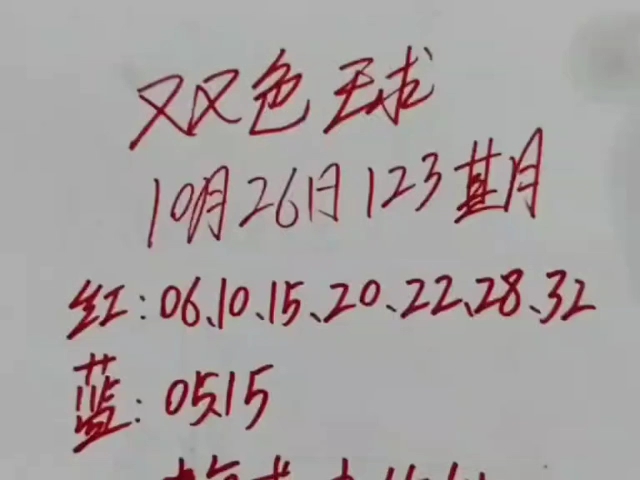 双色球
10月26日123期
红:06、10、15、20、22、28、32
蓝:05、15